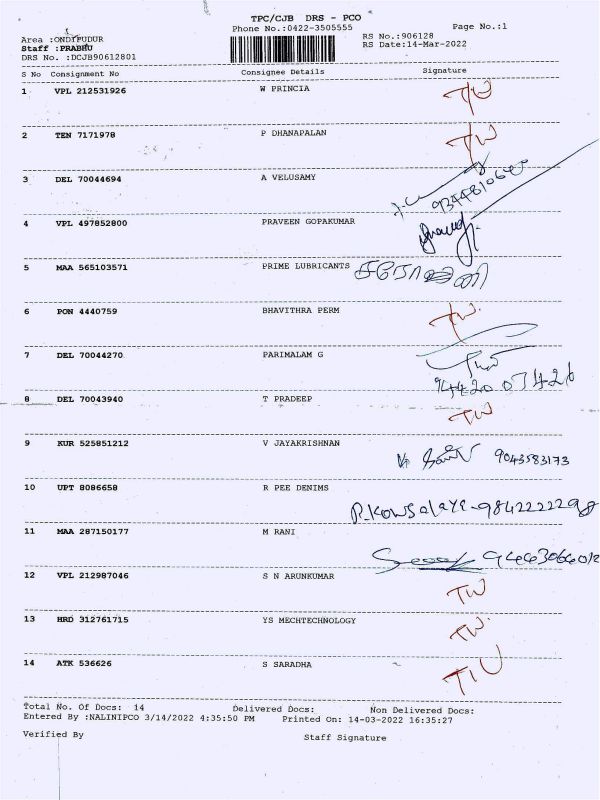 TPC/CJB DRS - PCO
Phone No.:0422-3505555
Page No.:1
RS No.:906128
Area :ONDIPUDUR
RS Date:14-Mar-2022
Staff :PRABHU
DRS No. :DCJB90612801
S No Consignment No Consignee Details Signature
1 VPL 212531926 W PRINCIA TW
2 TEN 7171978 P DHANAPALAN TW
3 DEL 70044694 A VELUSAMY
4 VPL 497852800 PRAVEEN GOPAKUMAR
5 MAA 565103571 PRIME LUBRICANTS
6 PON 4440759 BHAVITHRA PERM TW.
7 DEL 70044270 PARIMALAM G
94420 07426
8 DEL 70043940 T PRADEEP TW
9 KUR 525851212 V JAYAKRISHNAN
9043583173
10 UPT 8086658 R PEE DENIMS
P.Kowsalaya-9842222298
11 MAA 287150177 M RANI
12 VPL 212987046 S N ARUNKUMAR TW
13 HRD 312761715 YS MECHTECHNOLOGY TW.
14 ATK 536626 S SARADHA TW
Total No. Of Docs: 14 Delivered Docs: Non Delivered Docs:
Entered By :NALINIPCO 3/14/2022 4:35:50 PM Printed On: 14-03-2022 16:35:27
Verified By Staff Signature